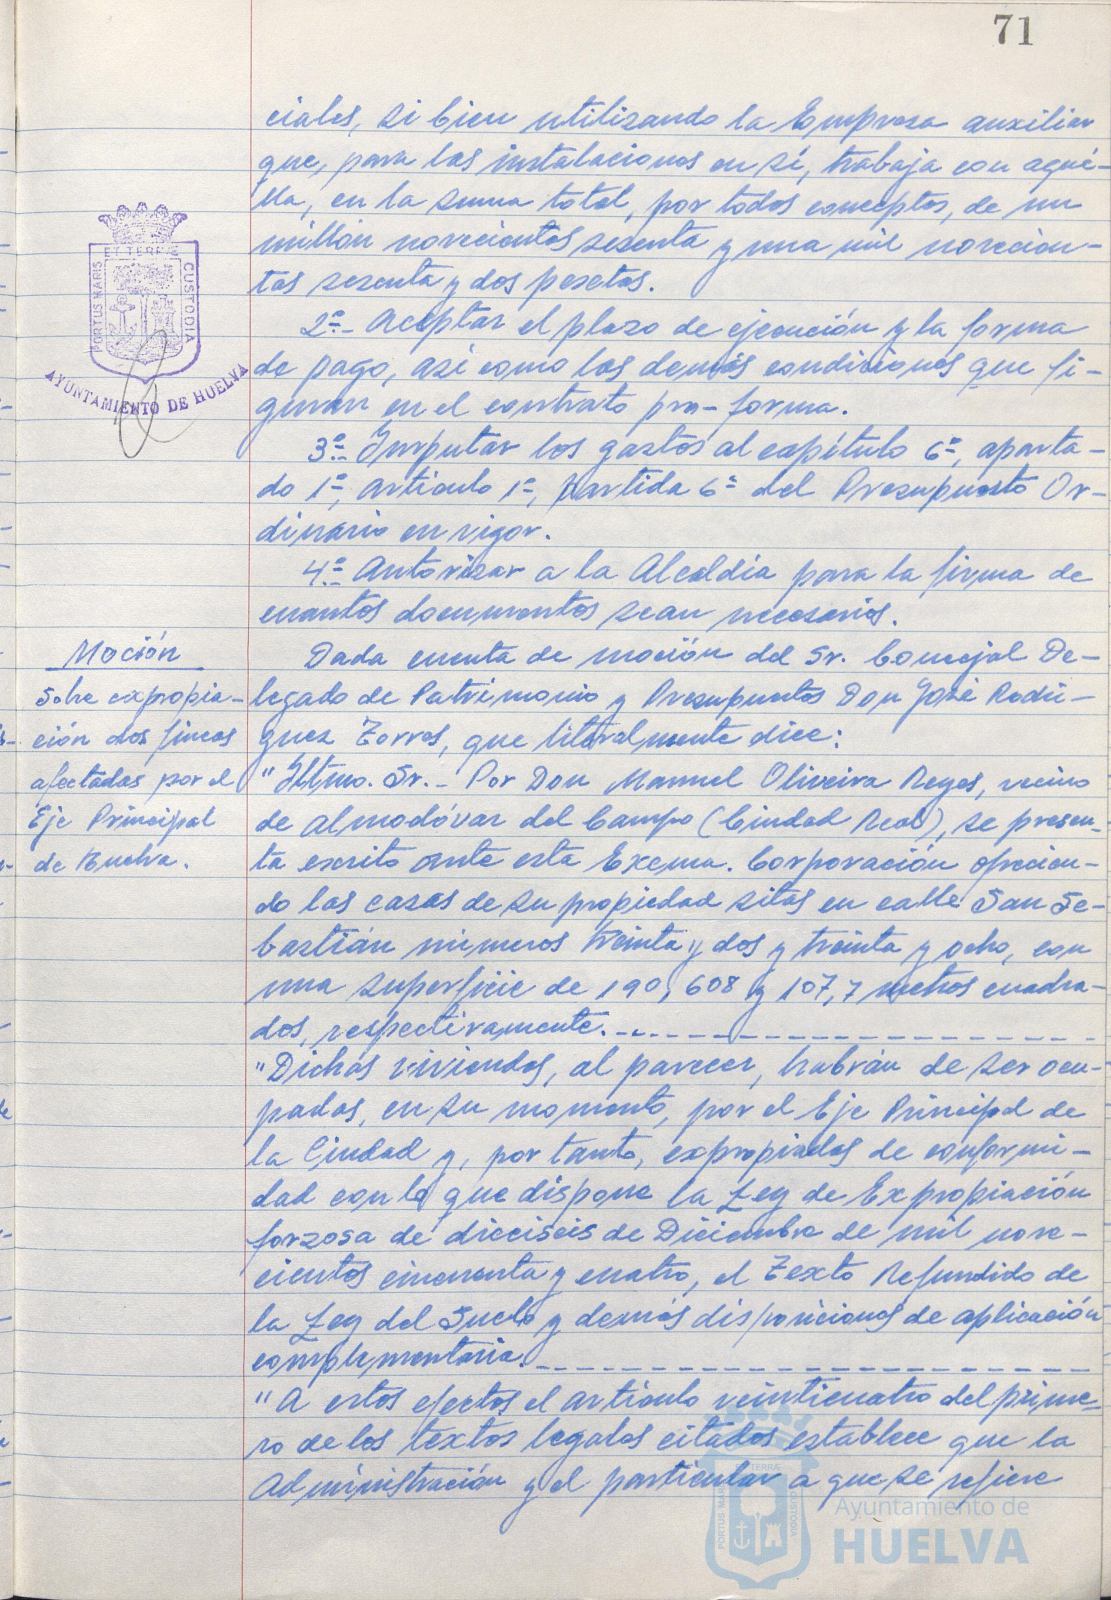 71
ciales, si bien utilizando la Empresa auxiliar
que, para las instalaciones en sí, trabaja con aqué-
lla, en la suma total, por todos conceptos, de un
millón novecientos sesenta y una mil novecien-
tas sesenta y dos pesetas.
2º.- Aceptar el plazo de ejecución y la forma
de pago, así como las demás condiciones que fi-
guran en el contrato pro-forma.
3º.- Imputar los gastos al capítulo 6º, aparta-
do 1º, artículo 1º, partida 6ª del Presupuesto Or-
dinario en vigor.
4º.- Autorizar a la Alcaldía para la firma de
cuantos documentos sean necesarios.
PORTUS MARIS ET TERRÆ CUSTODIA
AYUNTAMIENTO DE HUELVA
Moción
sobre expropia-
ción dos fincas
afectadas por el
Eje Principal
de Huelva.
Dada cuenta de moción del Sr. Concejal De-
legado de Patrimonio y Presupuestos Don José Rodrí-
guez Torres, que literalmente dice:
"Iltmo. Sr.- Por Don Manuel Oliveira Reyes, vecino
de Almodóvar del Campo (Ciudad Real), se presen-
ta escrito ante esta Excma. Corporación ofrecien-
do las casas de su propiedad sitas en calle San Se-
bastián números treinta y dos y treinta y ocho, con
una superficie de 190,608 y 107,7 metros cuadra-
dos, respectivamente.
"Dichas viviendas, al parecer, habrán de ser ocu-
padas, en su momento, por el Eje Principal de
la Ciudad y, por tanto, expropiadas de conformi-
dad con lo que dispone la Ley de Expropiación
forzosa de dieciseis de Diciembre de mil nove-
cientos cincuenta y cuatro, el Texto Refundido de
la Ley del Suelo y demás disposiciones de aplicación
complementaria.
"A estos efectos el artículo veinticuatro del prime-
ro de los textos legales citados establece que la
Administración y el particular a que se refiere
PORTUS MARIS ET TERRÆ CUSTODIA
Ayuntamiento de
HUELVA